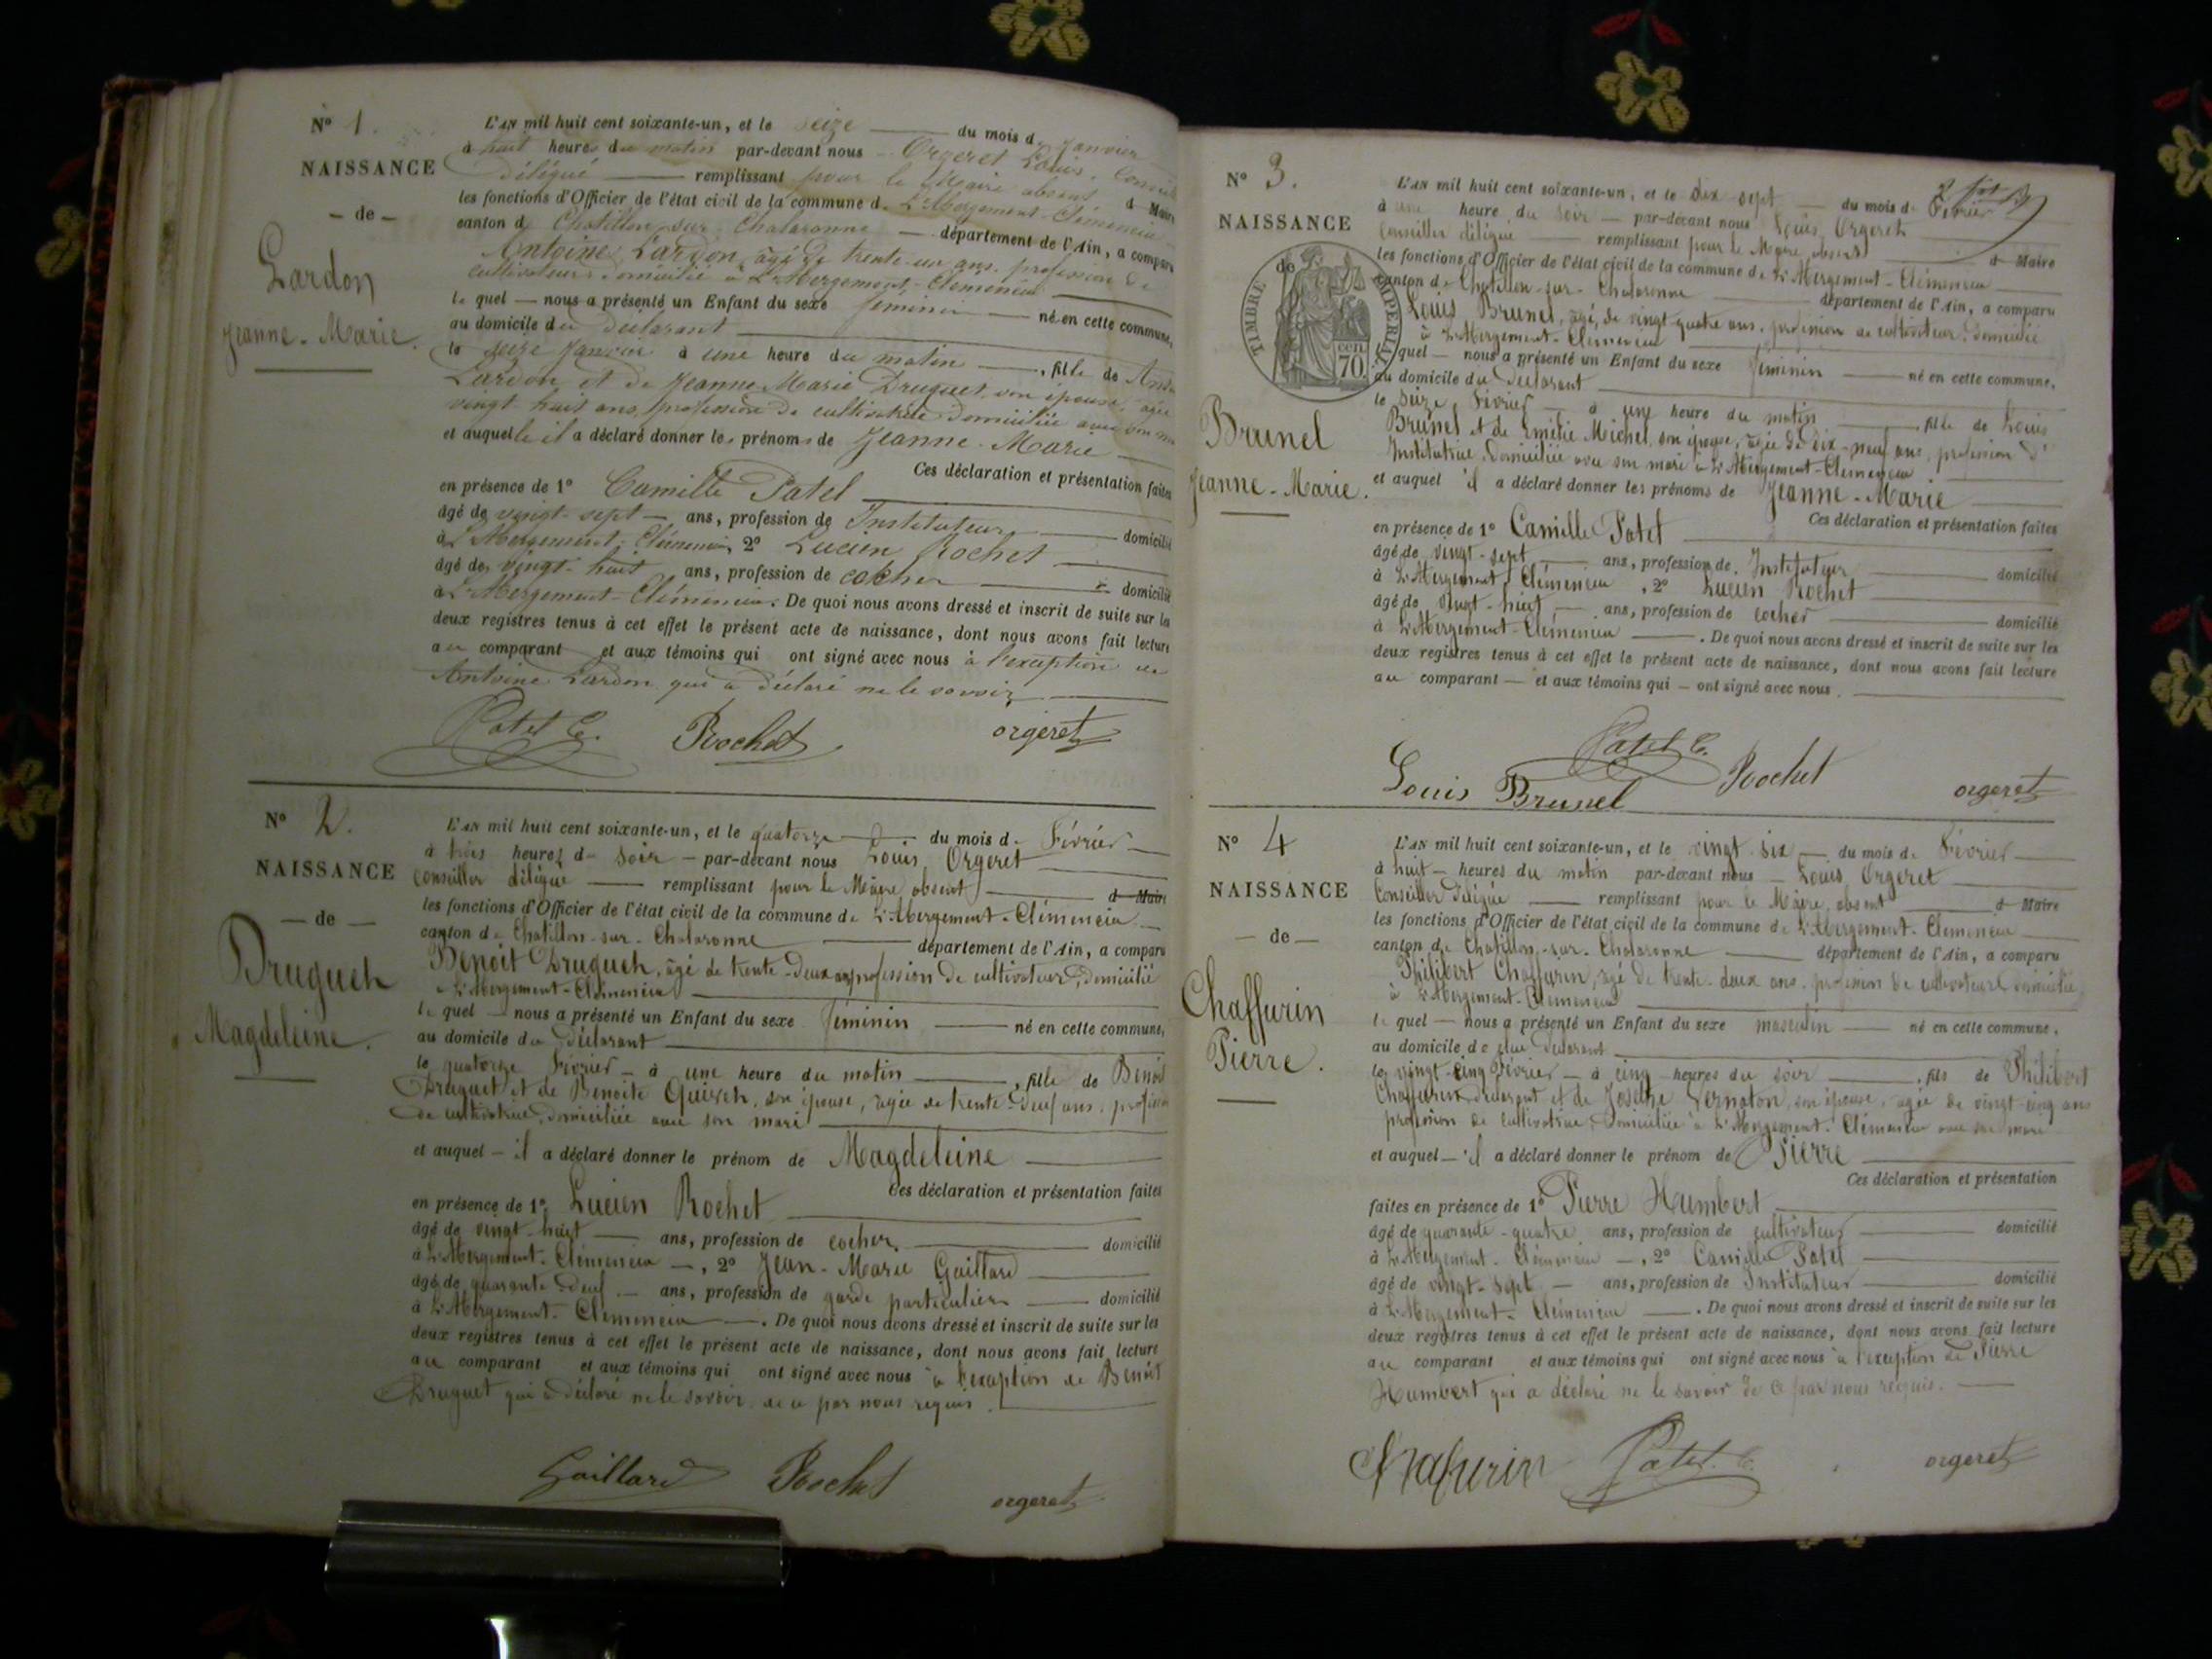 N° 1.
NAISSANCE
— de —
Lardon
Jeanne-Marie.
L'AN mil huit cent soixante-un, et le seize du mois de Janvier
à huit heures du matin par-devant nous Orgeret Louis, Conseil
délégué remplissant pour le Maire absent d Maire
les fonctions d'Officier de l'état civil de la commune de L'Abergement-Clémencia
canton de Chatillon sur Chalaronne département de l'Ain, a comparu
Antoine Lardon, âgé de trente-un ans, profession de
cultivateur domicilié à L'Abergement-Clémencia
le quel — nous a présenté un Enfant du sexe féminin né en cette commune,
au domicile du déclarant
le seize Janvier à une heure du matin, fille de
Lardon et de Jeanne Marie Druguet, son épouse, âgée
vingt-huit ans, profession de cultivatrice domiciliée avec son
et auquel le il a déclaré donner les prénoms de Jeanne-Marie
Ces déclaration et présentation faites
en présence de 1° Camille Patel
âgé de vingt-sept — ans, profession de Instituteur domicilié
à L'Abergement-Clémencia, 2° Lucien Rochet
âgé de vingt-huit ans, profession de cocher domicilié
à L'Abergement-Clémencia. De quoi nous avons dressé et inscrit de suite sur les
deux registres tenus à cet effet le présent acte de naissance, dont nous avons fait lecture
au comparant et aux témoins qui ont signé avec nous à l'exception de
Antoine Lardon qui a déclaré ne le savoir
Patel C. Rochet orgeret
N° 2.
NAISSANCE
— de —
Druguet
Magdeleine.
L'AN mil huit cent soixante-un, et le quatorze du mois de Février
à trois heures du soir — par-devant nous Louis Orgeret
conseiller délégué remplissant pour le Maire absent d Maire
les fonctions d'Officier de l'état civil de la commune de L'Abergement-Clémencia
canton de Chatillon-sur-Chalaronne département de l'Ain, a comparu
Benoit Druguet, âgé de trente-deux profession de cultivateur, domicilié
à L'Abergement-Clémencia
le quel — nous a présenté un Enfant du sexe féminin né en cette commune,
au domicile du déclarant
le quatorze Février — à une heure du matin, fille de Benoit
Druguet et de Benoite son épouse, âgée de trente-deux ans, profession
de cultivatrice, domiciliée avec son mari
et auquel — il a déclaré donner le prénom de Magdeleine
Ces déclaration et présentation faites
en présence de 1° Lucien Rochet
âgé de vingt-huit ans, profession de cocher. domicilié
à L'Abergement-Clémencia —, 2° Jean-Marie Gaillard
âgé de quarante neuf — ans, profession de garde particulier domicilié
à L'Abergement-Clémencia —. De quoi nous avons dressé et inscrit de suite sur les
deux registres tenus à cet effet le présent acte de naissance, dont nous avons fait lecture
au comparant et aux témoins qui ont signé avec nous à l'exception de Benoit
Druguet qui a déclaré ne le savoir de ce par nous requis.
Gaillard Rochet orgeret
N° 3.
NAISSANCE
de
TIMBRE IMPERIAL
cen
70.
Brunel
Jeanne-Marie.
L'AN mil huit cent soixante-un, et le dix sept du mois de Février
à une heure du soir — par-devant nous Louis Orgeret
conseiller délégué remplissant pour le Maire absent d Maire
les fonctions d'Officier de l'état civil de la commune de L'Abergement-Clémencia
canton de Chatillon-sur-Chalaronne département de l'Ain, a comparu
Louis Brunel, âgé de vingt-quatre ans, profession de cultivateur, domicilié
à L'Abergement-Clémencia
quel — nous a présenté un Enfant du sexe féminin né en cette commune,
au domicile du déclarant
le seize Février — à une heure du matin, fille de Louis
Brunel et de Emélie Michel, son épouse, âgée de dix-neuf ans, profession d'
Institutrice, domiciliée avec son mari à L'Abergement-Clémencia
et auquel il a déclaré donner les prénoms de Jeanne-Marie
Ces déclaration et présentation faites
en présence de 1° Camille Patel
âgé de vingt-sept ans, profession de Instituteur domicilié
à L'Abergement-Clémencia, 2° Lucien Rochet
âgé de vingt-huit — ans, profession de cocher domicilié
à L'Abergement-Clémencia. De quoi nous avons dressé et inscrit de suite sur les
deux registres tenus à cet effet le présent acte de naissance, dont nous avons fait lecture
au comparant — et aux témoins qui — ont signé avec nous.
Louis Brunel Patel C. Rochet orgeret
N° 4
NAISSANCE
— de —
Chaffurin
Pierre.
L'AN mil huit cent soixante-un, et le vingt-six — du mois de Février
à huit — heures du matin par-devant nous — Louis Orgeret
Conseiller délégué remplissant pour le Maire absent d Maire
les fonctions d'Officier de l'état civil de la commune de L'Abergement-Clémencia
canton de Chatillon-sur-Chalaronne département de l'Ain, a comparu
Philibert Chaffurin, âgé de trente-deux ans, profession de cultivateur, domicilié
à L'Abergement-Clémencia
le quel — nous a présenté un Enfant du sexe masculin né en cette commune,
au domicile de déclarant
le vingt-cinq Février — à cinq heures du soir, fils de Philibert
Chaffurin déclarant et de son épouse, âgée de vingt-cinq ans
profession de cultivatrice, domiciliée à L'Abergement-Clémencia avec son mari
et auquel — il a déclaré donner le prénom de Pierre
Ces déclaration et présentation
faites en présence de 1° Pierre Humbert
âgé de quarante-quatre ans, profession de cultivateur domicilié
à L'Abergement-Clémencia —, 2° Camille Patel
âgé de vingt-sept — ans, profession de Instituteur domicilié
à L'Abergement-Clémencia. De quoi nous avons dressé et inscrit de suite sur les
deux registres tenus à cet effet le présent acte de naissance, dont nous avons fait lecture
au comparant et aux témoins qui ont signé avec nous à l'exception de Pierre
Humbert qui a déclaré ne le savoir de ce par nous requis.
Chafurin Patel. C. orgeret